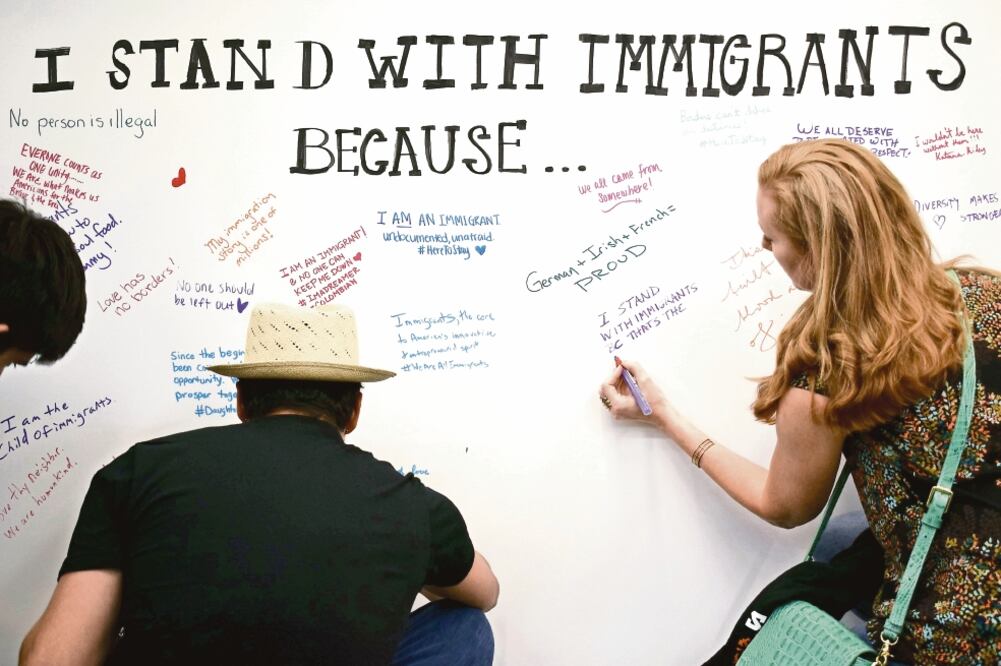 I STAND WITH IMMIGRANTS
BECAUSE...
No person is illegal
EVERYONE COUNTS as
ONE UNITY.....
WE ARE what makes us
Americans for the
soul food.
Love has
no borders!
My immigration
story is one of
millions!
No one should
be left out
I AM AN IMMIGRANT!
& NO ONE CAN
KEEP ME DOWN
#IMADREAMER
COLOMBIAN
I AM AN IMMIGRANT
undocumented, unafraid.
#HereToStay
Immigrants, the core
to America's innovative
spirit
#WeAreAllImmigrants
Since the begin
been
opportunity.
prosper toge
#Daught
I am the
Child of immigrants.
thy neighbor.
We are humankind.
we all came from
somewhere!
German + Irish + French =
PROUD
I STAND
WITH IMMIGRANTS
BC THATS THE
#HereToStay
WE ALL DESERVE
WITH
RESPECT.
I wouldn't be here
without them!!!
DIVERSITY MAKES
STRONGER
love